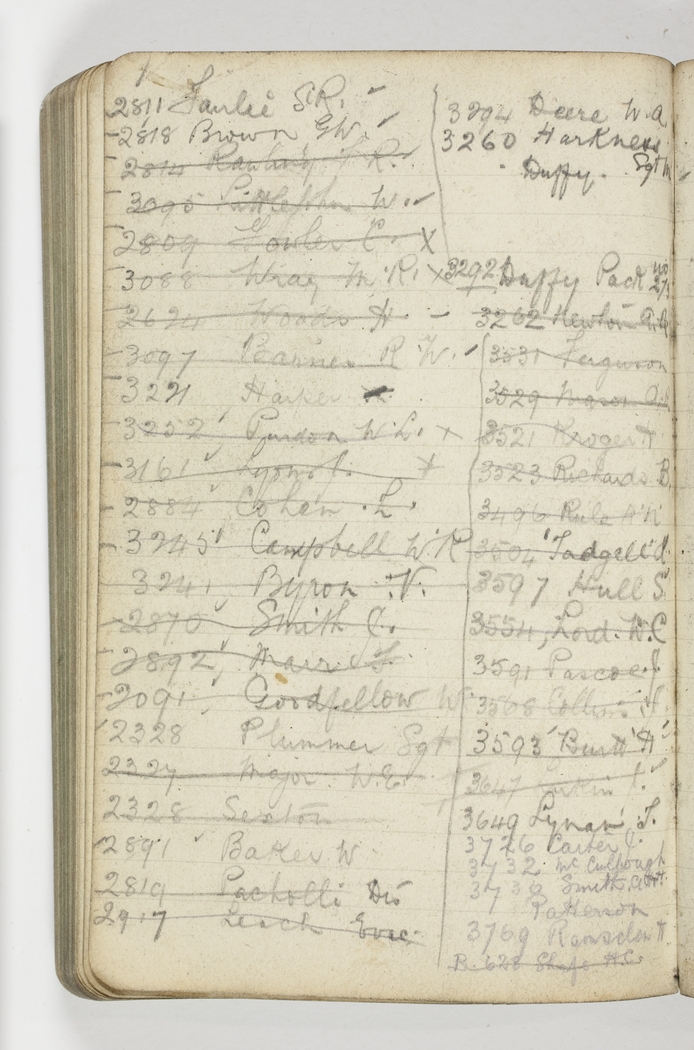 2811 Fairlie S.R.
2818 Brown G.W.
2814 Rawling J R.
3095 Littlejohn W.
2809 Fowler C. X
3088 Wray M.R. X
2624 Woods H -
3097 R W.
3221 Harker
3252 Purdon W.L. X
3161 Lyons J. X
2884 Cohen L.
3245 Campbell W R
3241 Byron V.
2870 Smith C.
2892 Mair
2091 Goodfellow W
2328 Plummer Sgt
2327 Major W.E.
2328 Sexton
2891 Baker W
2819 Pacholli Dis
2917 Leach Evac
3294 Deere W.A.
3260 Harkness
Duffy. Sgt M
3292 Duffy Pack no
3262 Newton
3531 Ferguson
3529 Mason
3521 Kroger H
3523 Richards B.
3496 Rule
3504 Tadgell
3597 Hull S
3554, Lord. W.C
3591 Pascoe J.
3568 Collins J.
3593 Burtt H
3647 J.
3649 Lynam J.
3726 Carter J.
3732 McCullough
3736 Smith
Patterson
3769 Ramsden H
B. 628 Sharpe H.C.